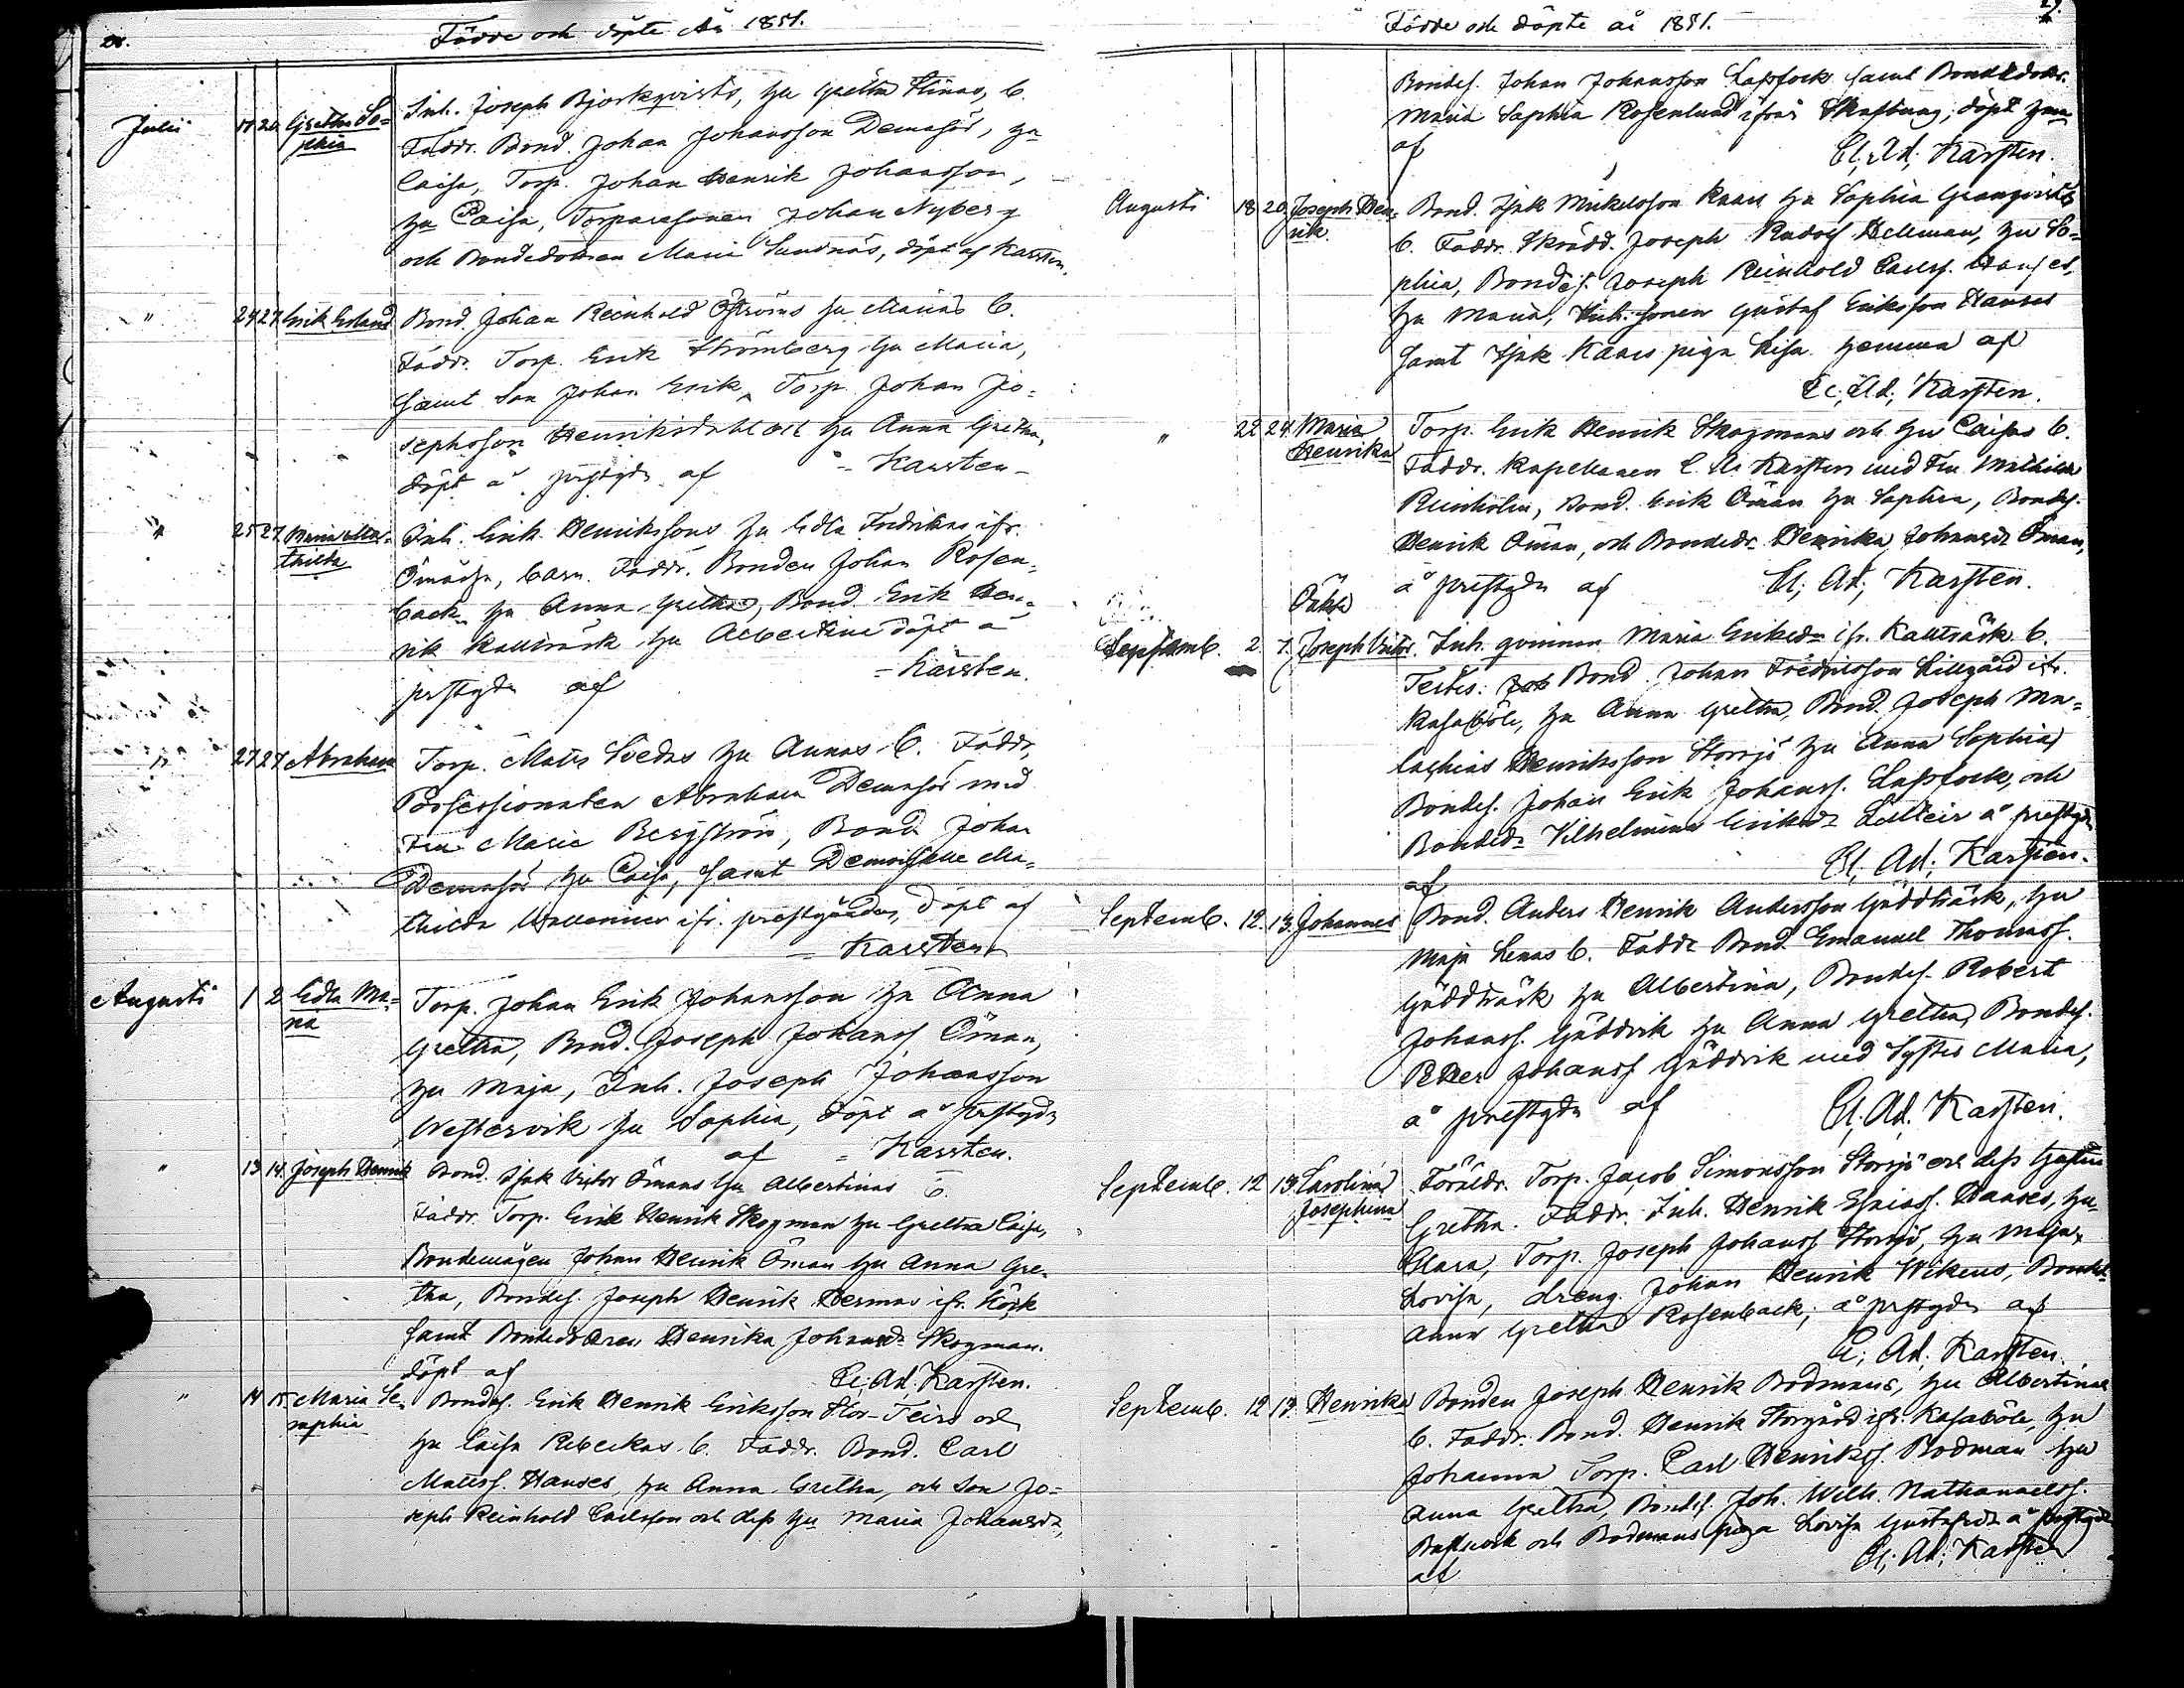 28.
Födde och döpte År 1851.
Julii 17 20 Gretha So= Inh. Joseph Bjorkqvists, hu Gretha Stinas, b.
phia Faddr. Bond. Johan Johansson Demasör, hu
Caisa, Torp. Johan Henrik Johansson,
hu Caisa, Torparesonen Johan Nyberg
och Bondedottren Maria Sundnäs, döpt af Karsten.
" 24 27 Erik Erland Bond. Johan Reinhold hu Marias b.
Fadr. Torp. Erik Strömberg hu Maria,
samt Son Johan Erik, Torp. Johan Jo=
sephsson och hu Anna Gretha,
döpt å prstgdn af - Karsten -
" 25 27 Maria Ma=
thilda Inh. Erik Henrikssons hu Edla Fredrikas ifr.
barn. Faddr. Bonden Johan Rosen=
back hu Anna Gretha, Bond. Erik Hen=
rik Kallträsk hu Albertina döpt å
prstgdn af - Karsten.
" 27 27 Abraham Torp. Matts Svedas hu Annas b. Faddr,
Possessionaten Abraham Demasör med
Fru Maria Bergström, Bond. Johan
Demasör hu Caisa, samt Demoiselle Ma=
thilda ifr. prestgården, döpt af
- Karsten
Augusti 1 2 Edla Ma=
ria Torp. Johan Erik Johansson hu Anna
Gretha, Bond. Joseph Johanss Öman,
hu Maja, Inh. Joseph Johansson
Westervik hu Sophia, döpt å prstgdn
af - Karsten.
" 13 14 Joseph Henrik Bond. Isak Victor Ömans hu Albertinas b.
Faddr. Torp. Erik Henrik Skogman hu Gretha Caisa,
Bondemågen Johan Henrik Öman hu Anna Gre=
tha, Bondes. Joseph Henrik Hermas ifr.
samt Bondedottren Henrika Johansdr Skogman.
döpt af Cl. Ad. Karsten.
" 14 15 Maria Se=
raphia Bondes. Erik Henrik Eriksson Stor-Teirs och
hu Caisa Rebeckas b. Faddr. Bond. Carl
Mattss. Hanses, hu Anna Gretha, och Son Jo=
seph Reinhold Carlsson och dess hu Maria Johansdr,
29.
Födde och döpte år 1851.
Bondes. Johan Johansson Lassfock samt Bondedottr.
Maria Sophia Rosenlund ifrån Skaftung, döpt
af Cl. Ad. Karsten.
Augusti 18 20 Joseph Hen=
rik. Bond. Isak Mickelsson Kaars hu Sophia Granqvists
b. Faddr. Skrädd. Joseph Rudolf Hellman, hu So=
phia, Bondes. Joseph Reinhold Carlss. Hanses,
hu Maria, Inh. sonen Gustaf Eriksson Hanses
samt Isak Kaars piga Lisa hemma af
Cl. Ad. Karsten.
" 22 24 Maria
Henrika Torp. Erik Henrik Skogmans och hu Caisas b.
Faddr. Kapellanen C. A. Karsten med Fru Mathilda
Reinholm, Bond. Erik Öman hu Sophia, Bondes.
Henrik Öman, och Bondedr. Henrika Johansdr Öman,
å prestgdn af Cl. Ad. Karsten.
Oäkta
Septemb. 2. 7. Joseph Victor. Inh. qvinnan Maria Eriksdr ifr. Kallträsk b.
Testes: Bond. Johan Fredriksson Lillgård ifr.
Kasaböle, hu Anna Gretha, Bond. Joseph Ma=
lachias Henriksson Storsjö hu Anna Sophia,
Bondes. Johan Erik Johanss. Lassfock, och
Bondedr Vilhelmina Eriksdr Lillteir å prestgdn
af Cl. Ad. Karsten.
Septemb. 12. 13. Johannes Bond. Anders Henrik Andersson Gäddträsk, hu
Maja Lenas b. Faddr Bond. Emanuel Thomass.
Gäddträsk hu Albertina, Bondes. Robert
Johanss. Gäddvik hu Anna Gretha, Bondes.
Petter Johanss Gäddvik med Syster Maria,
å prestgdn af Cl. Ad. Karsten.
Septemb. 12 13 Carolina
Josephina Föräldr. Torp. Jacob Simonsson Storsjö och dess hustru
Gretha. Faddr. Inh. Henrik Esaiass. Hanses, hu
Clara, Torp. Joseph Johanss Storsjö, hu Maja
Lovisa, dreng. Johan Henrik Wikens,
Anna Gretha Rosenback, å prstgdn af
Cl. Ad. Karsten.
Septemb. 12 13. Henrika Bonden Joseph Henrik Bodmans, hu Albertinas
b. Faddr. Bond. Henrik Storgård ifr. Kasaböle, hu
Johanna Torp. Carl Henrikss. Bodman hu
Anna Gretha, Bondes. Joh. Wilh. Nathanaelss.
och Bodmans piga Lovisa Gustafsdr å prstgdn
af Cl. Ad. Karsten